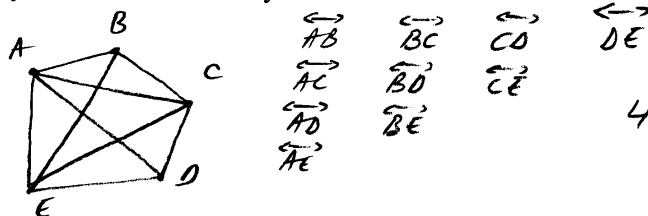 A B C D E
↔AB ↔BC ↔CD ↔DE
↔AC ↔BD ↔CE
↔AD ↔BE 4
↔AE